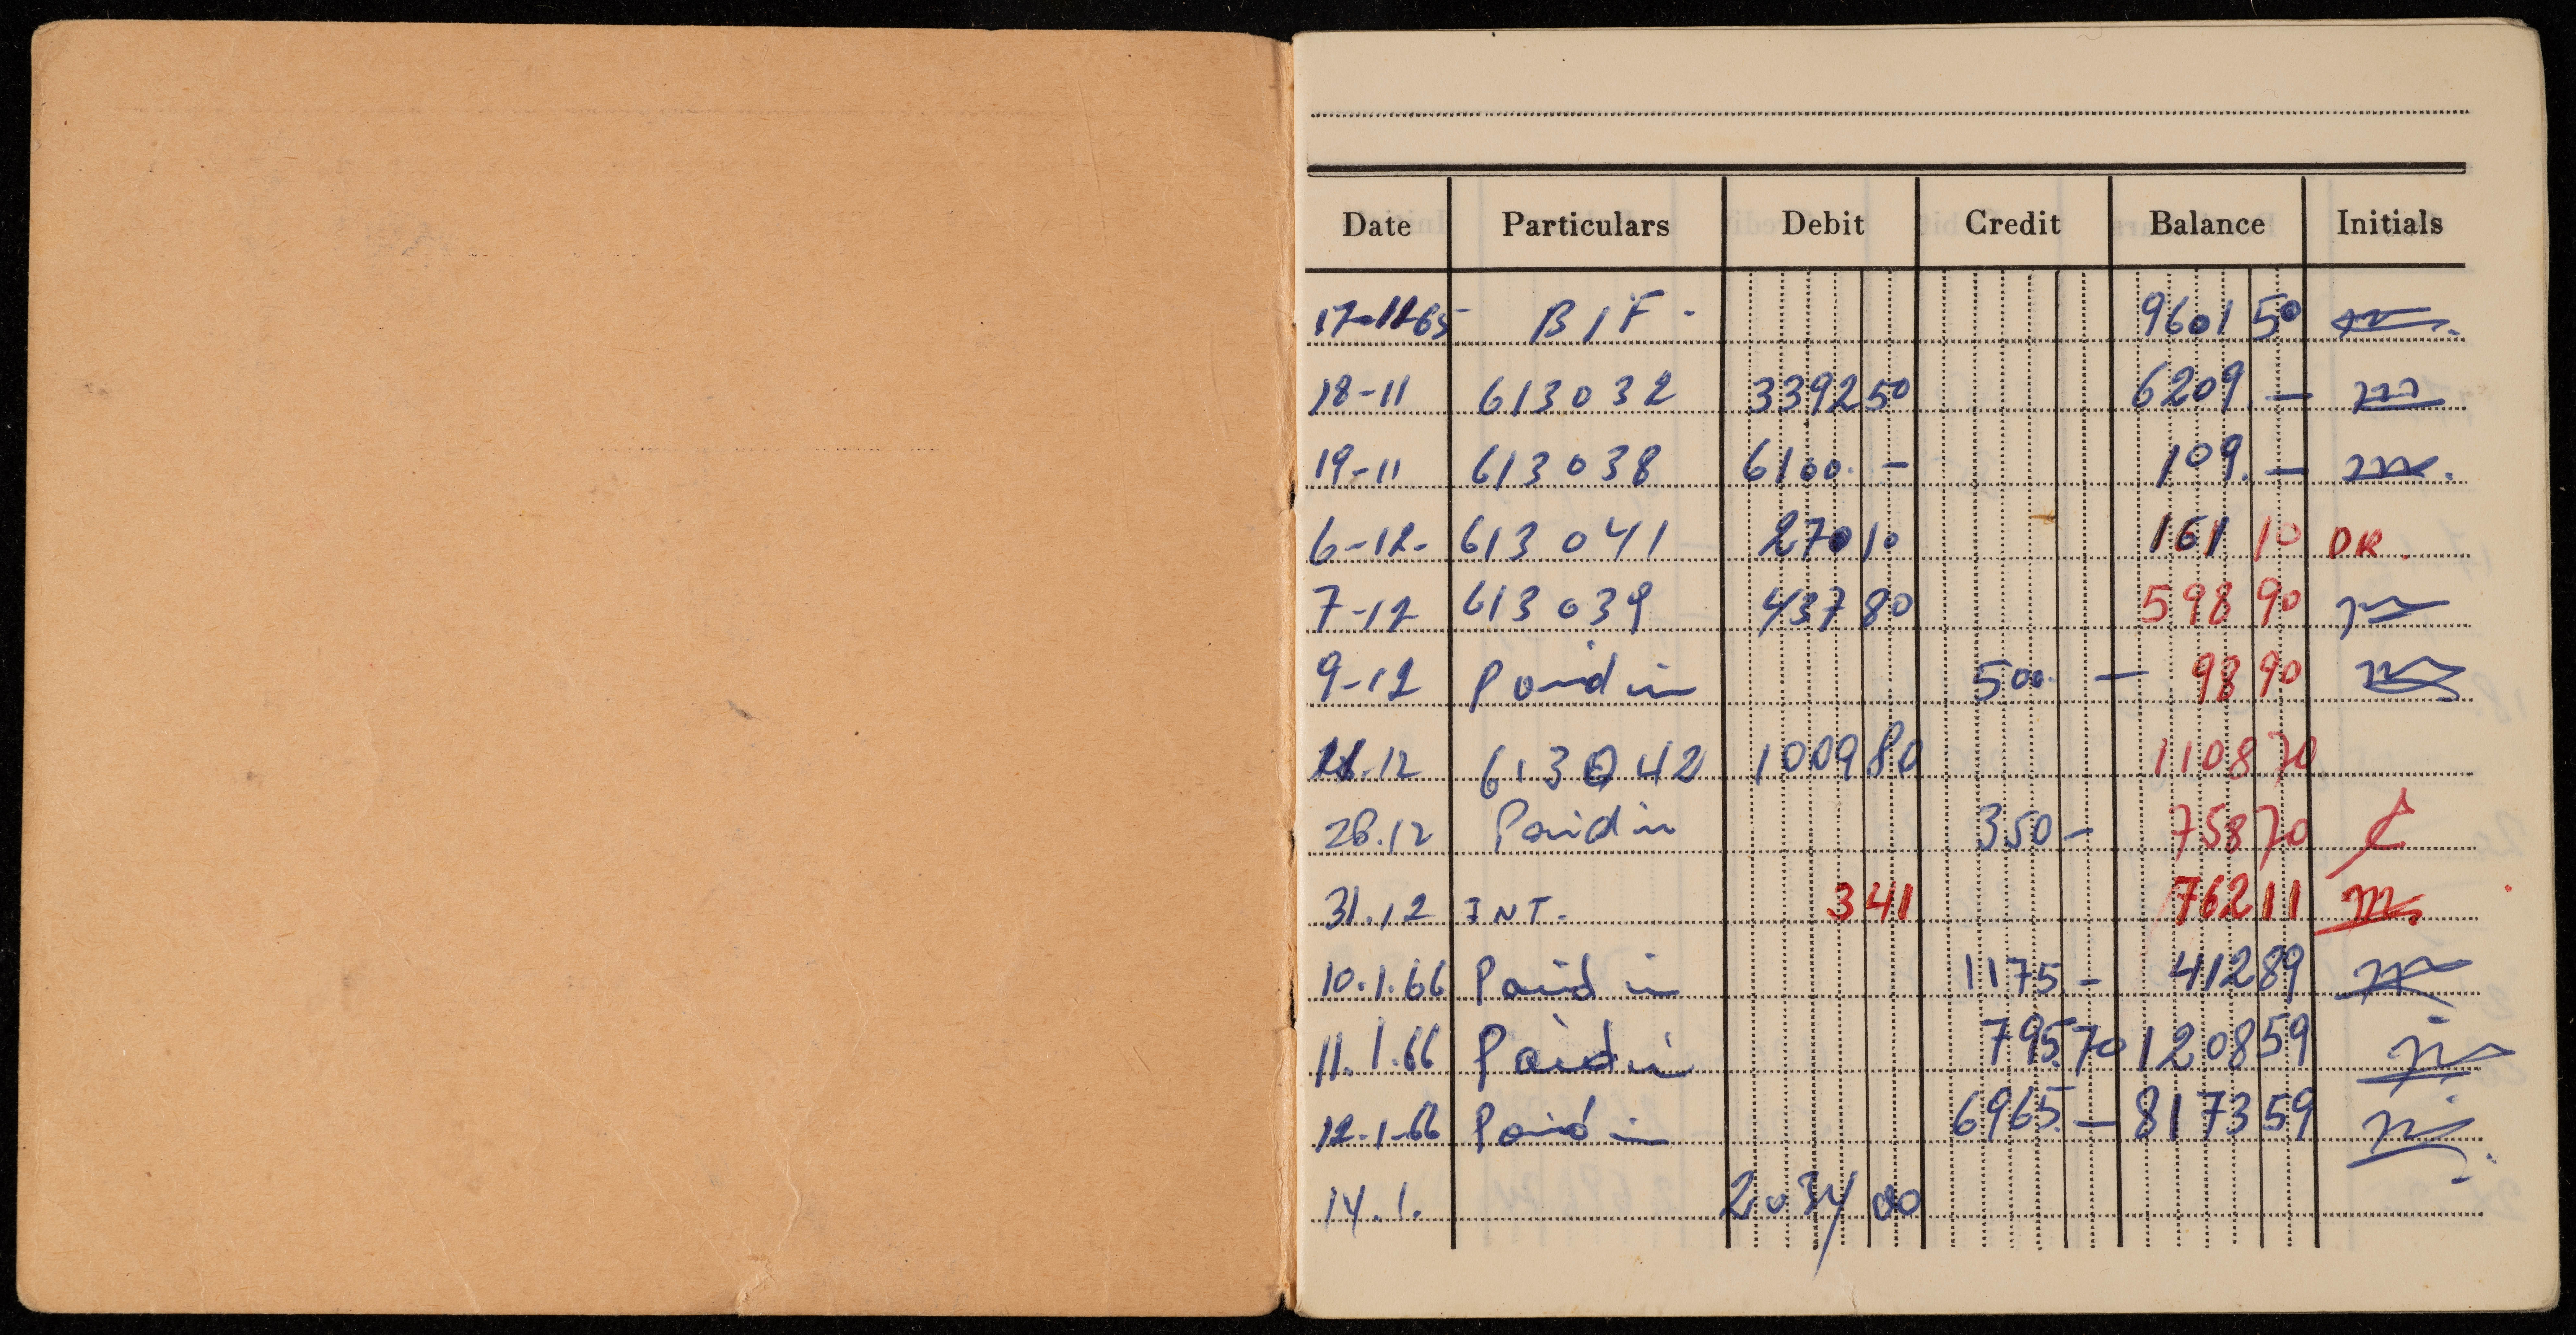 Date Particulars Debit Credit Balance Initials
17-11-65 B/F - 9601 50
18-11 613032 3392 50 6209 —
19-11 613038 6100. - 109. —
6-12- 613041 270 10 161 10 DR.
7-12 613039 437 80 598 90
9-12 Paid in 500. — 98 90
.12 613042 1009 80 1108 70
28.12 Paid in 350 - 758 70
31.12 INT. 3 41 762 11
10.1.66 Paid in 1175 - 412 89
11.1.66 Paid in 795.70 1208 59
12-1-66 Paid in 6965. — 8173 59
14.1. 2034 00